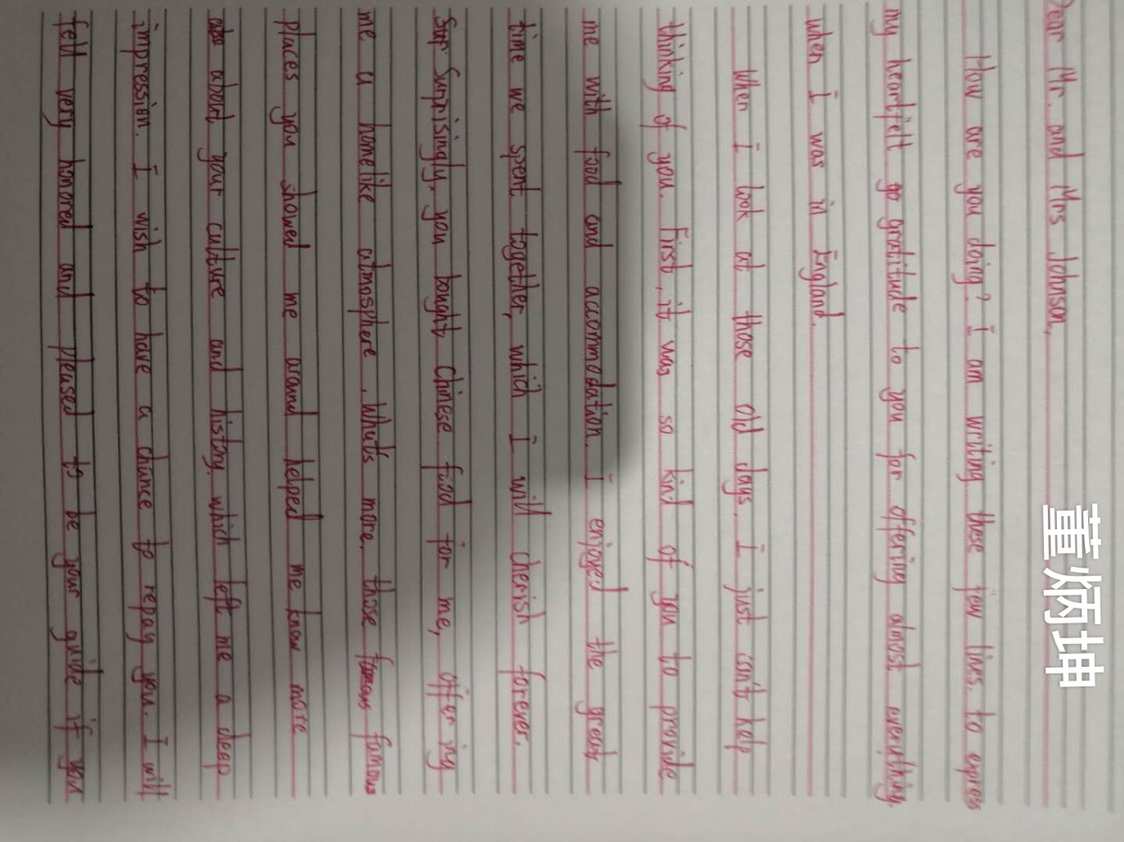 Dear Mr. and Mrs Johnson,
How are you doing? I am writing these few lines. to express
my heartfelt go gratitude to you for offering almost everything
when I was in England.
When I look at those old days, I just can't help
thinking of you. First, it was so kind of you to provide
me with food and accommodation. I enjoyed the great
time we spent together, which I will cherish forever.
Sup Surprisingly, you bought Chinese food for me, offering
me a homelike atmosphere. What's more, those famous famous
places you showed me around helped me know more
about your culture and history, which left me a deep
impression. I wish to have a chance to repay you. I will
fell very honored and pleased to be your guide if you
董炳坤